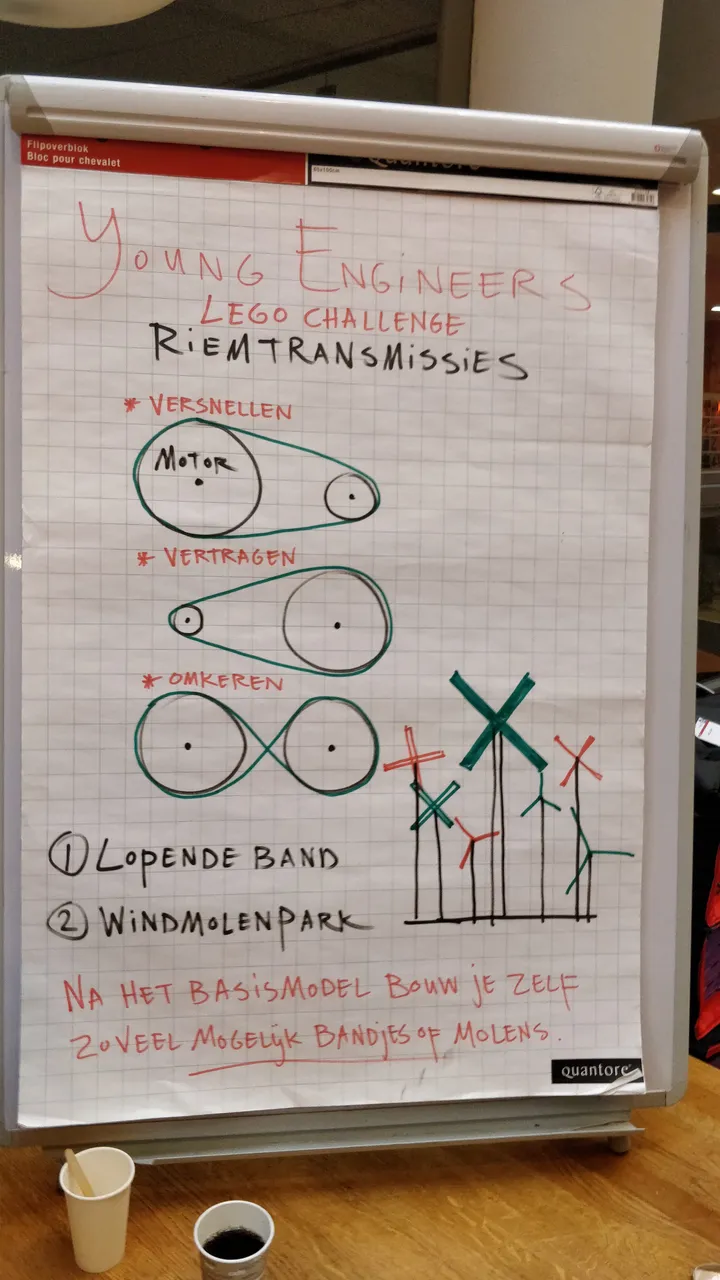 Flipoverblok
Bloc pour chevalet
Quantore
65x100cm
YOUNG ENGINEERS
LEGO CHALLENGE
RIEMTRANSMISSIES
* VERSNELLEN
MOTOR
* VERTRAGEN
* OMKEREN
1 LOPENDE BAND
2 WINDMOLENPARK
NA HET BASISMODEL BOUW JE ZELF
ZOVEEL MOGELIJK BANDJES OF MOLENS.
quantore